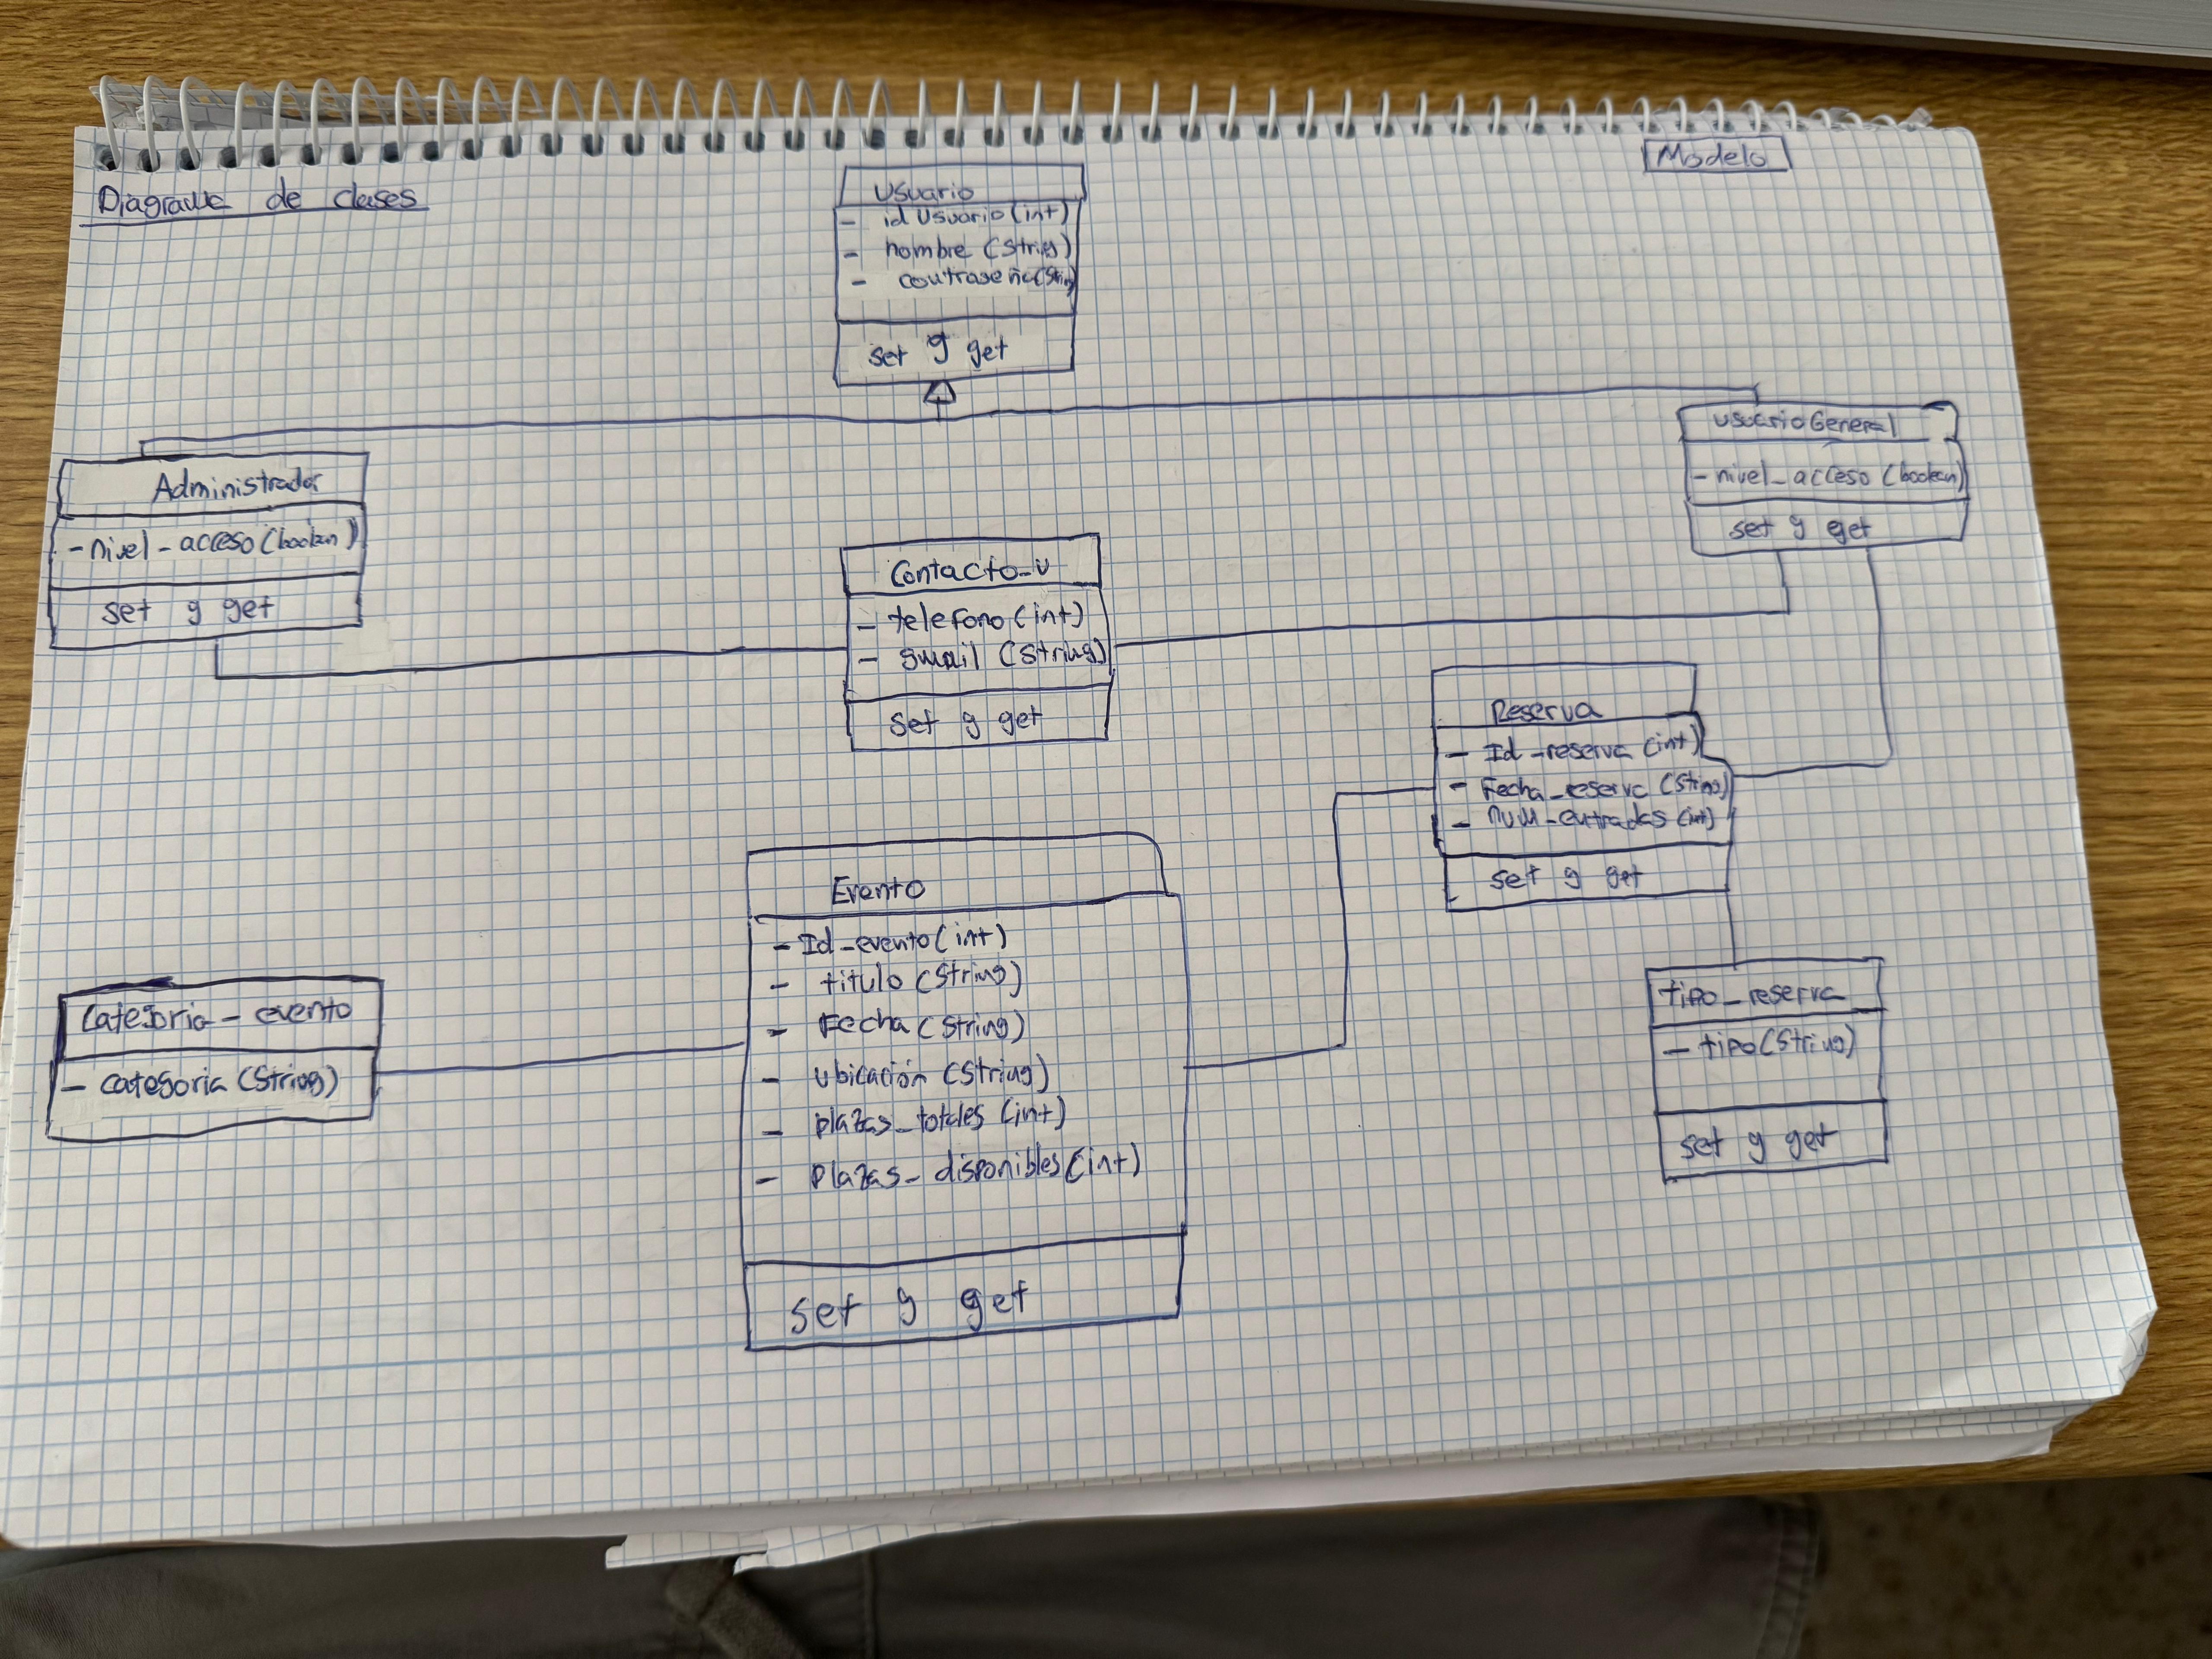 Diagrama de clases
Modelo
Usuario
- idUsuario (int)
- nombre (String)
- contraseña (String)
set y get
Administrador
- nivel_acceso (boolean)
set y get
usuarioGeneral
- nivel_acceso (boolean)
set y get
Contacto_u
- telefono (int)
- gmail (String)
set y get
Reserva
- Id_reserva (int)
- Fecha_reserva (String)
- num_entradas (int)
set y get
Evento
- Id_evento (int)
- titulo (String)
- Fecha (String)
- ubicación (String)
- plazas_totales (int)
- Plazas_disponibles (int)
set y get
Categoria_evento
- categoria (String)
tipo_reserva
- tipo (String)
set y get